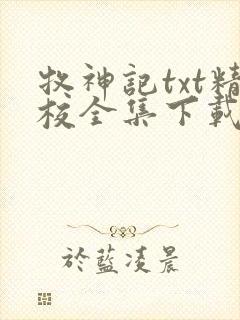 牧神記txt精
校全集下載
於藍凌晨